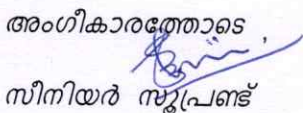 അംഗീകാരത്തോടെ
സീനിയർ സൂപ്രണ്ട്